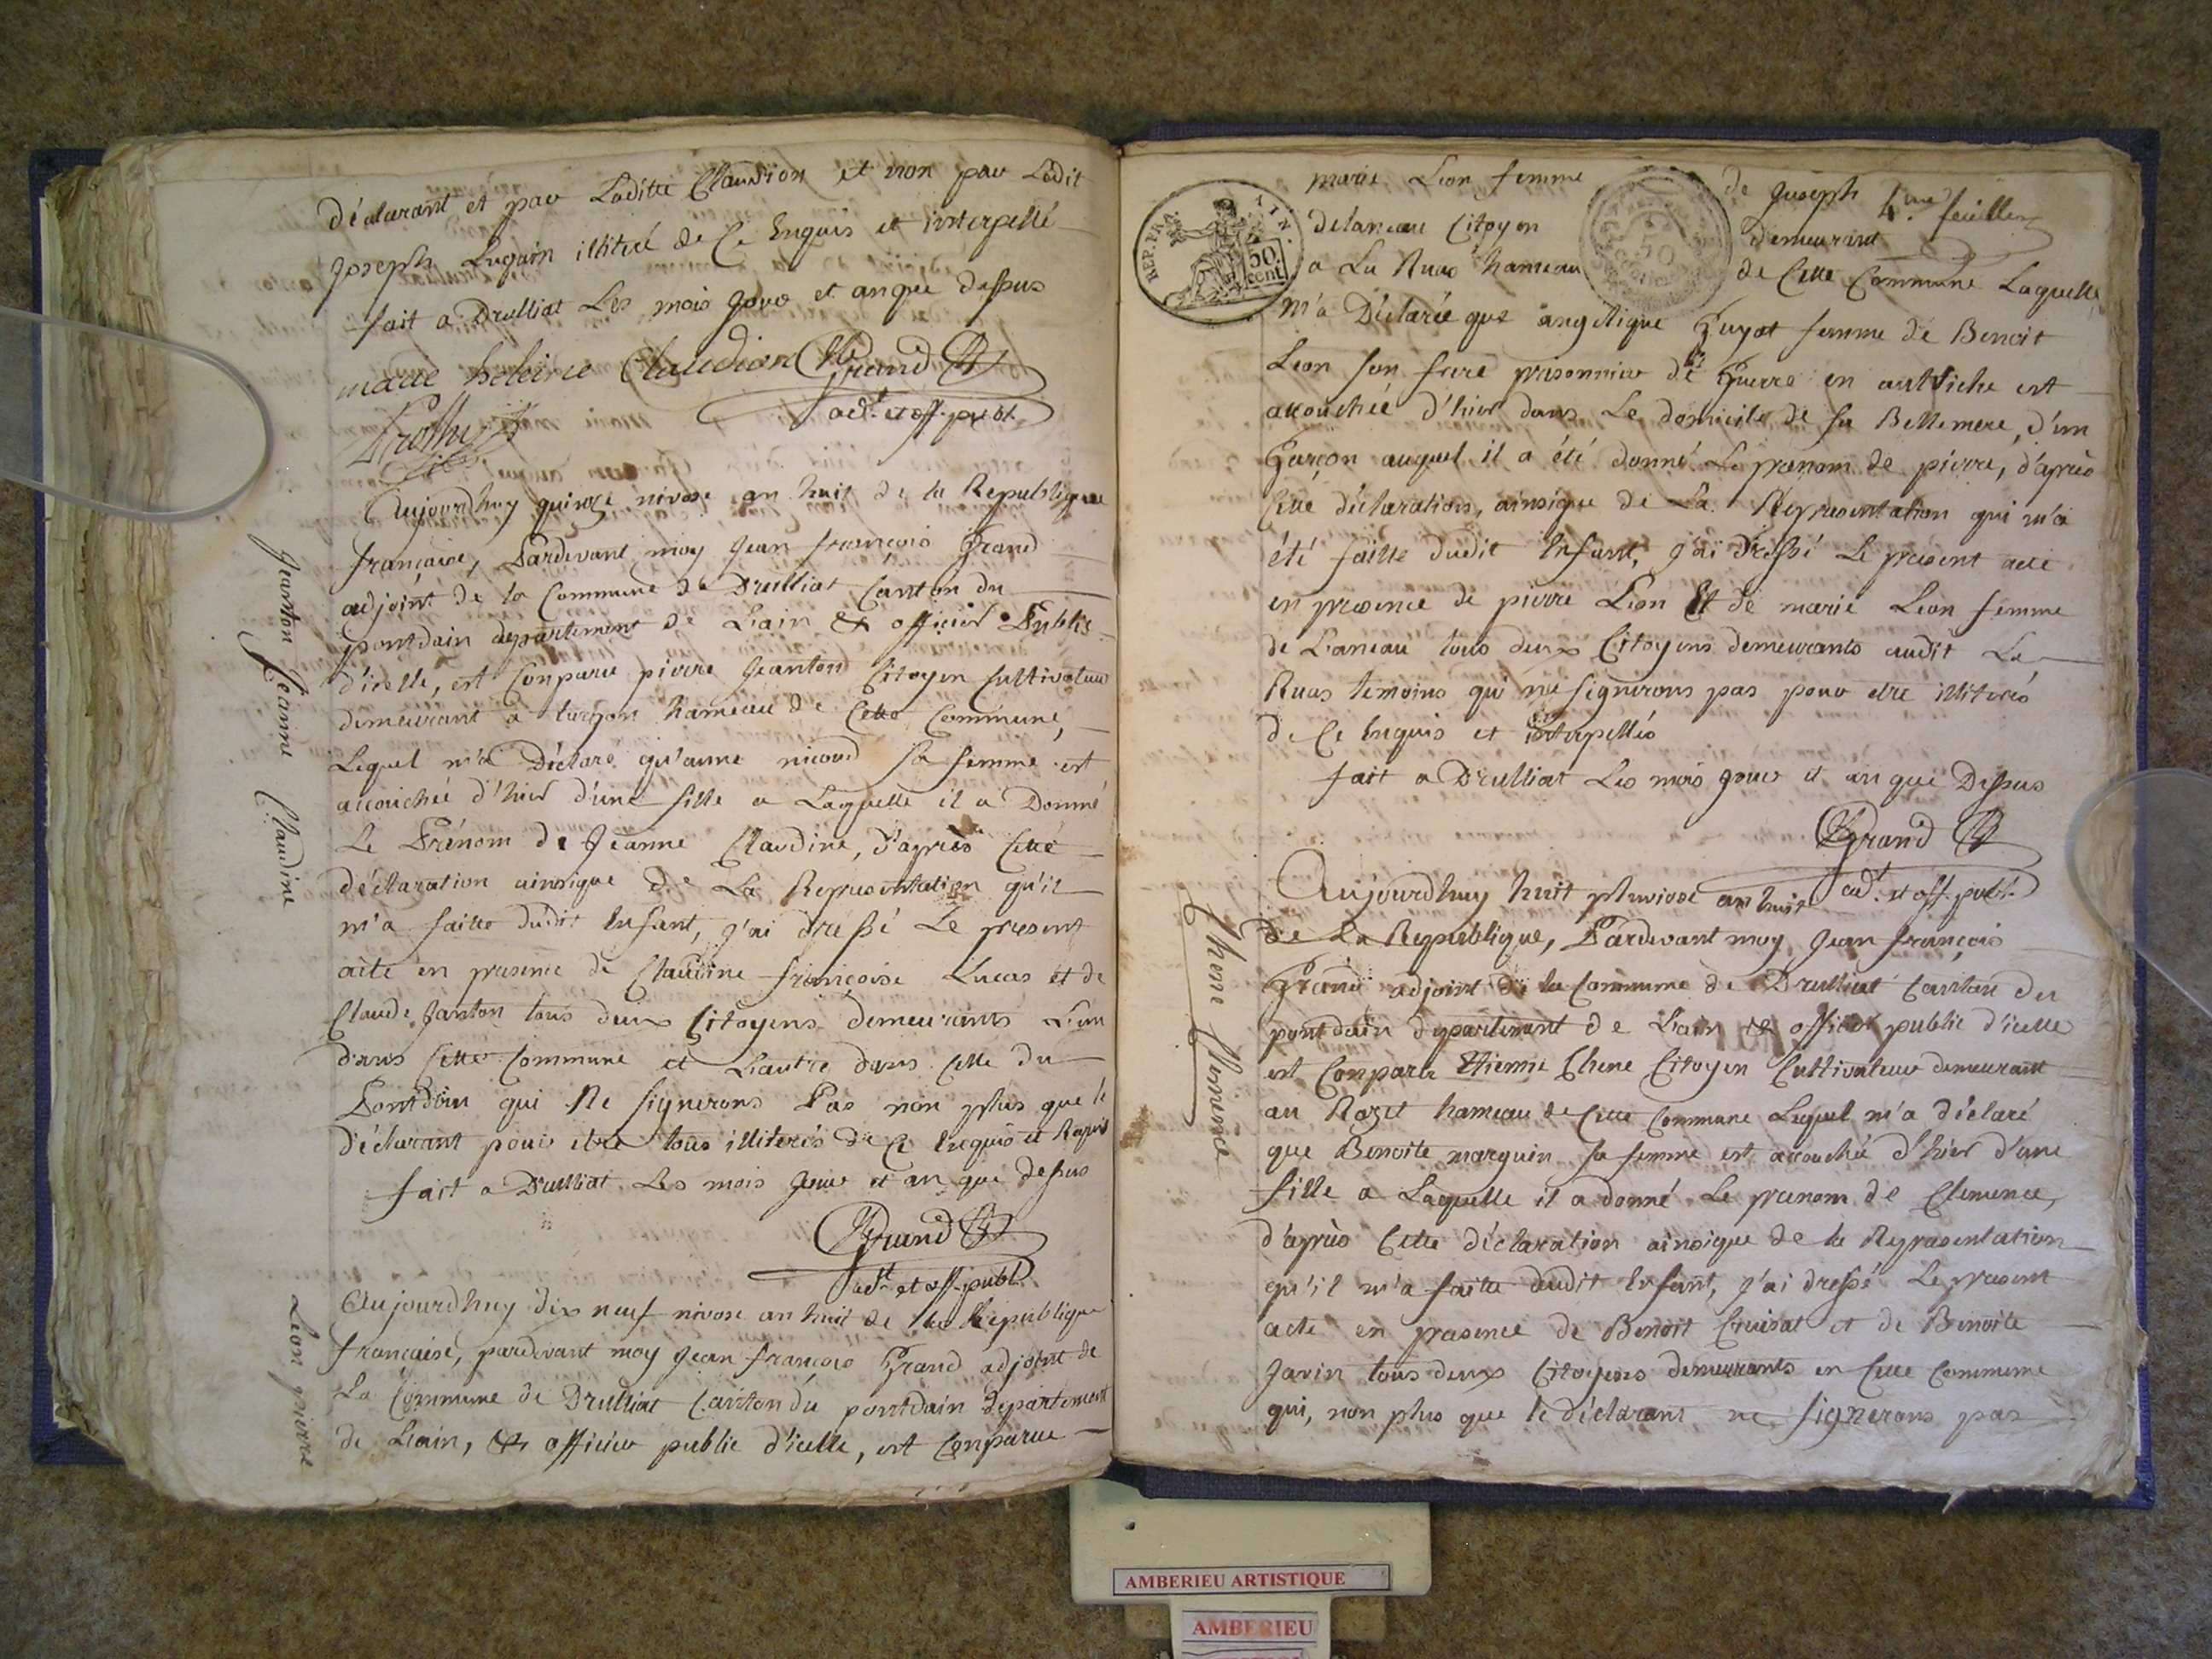 déclarant et par Laditte Claudion et non par Ledit
Joseph Lugain illitéré de Ce Enquis et interpellé
fait a Drulliat Les mois jour et an que dessus
marie heleine Claudion Grand
adt. et off. publ.
Aujourdhuy quinze nivose an huit de la Republique
française, Pardevant moy Jean françois Grand
adjoint de la Commune de Drulliat Canton du
pontdain departement de L'ain & officier Public
d'icelle, est Comparu pierre Jeanton Citoyen Cultivateur
demeurant a turgon hameau de Cette Commune,
Lequel m'a Déclaré qu'anne nicoud sa femme est
accouchée d'hier d'une fille a Laquelle il a Donné
Le Prénom de Jeanne Claudine, d'après Cette
déclaration ainsique de La Representation qu'il
m'a faitte dudit Enfant, j'ai dressé Le present
acte en presence de Claudine françoise Lucas et de
Claude Janton tous deux Citoyens demeurants L'un
dans Cette Commune et L'autre dans Celle du
Pontdain qui Ne signerons Pas non plus que le
déclarant pour etre tous illiterés de Ce Enquis et Requis
fait a Drulliat Les mois jour et an que dessus
Grand
adt. et off. publ.
Jeanton Jeanne Claudine
Aujourdhuy dix neuf nivose an huit de La Republique
française, pardevant moy Jean françois Grand adjoint de
La Commune de Drulliat Canton du pontdain departement
de L'ain, & officier public d'icelle, est Comparue
Leon pierre
REP. FRA. AIN.
50. cent.
marie Leon femme de Joseph 4.me feuillet
delaneau Citoyen demeurant
a La Ruas hameau de Cette Commune Laquelle
m'a Déclarée que angelique Guyot femme de Benoit
Leon son frere prisonnier de Guerre en auttriche est
accouchée d'hier dans Le domicile de sa Bellemere, d'un
Garçon auquel il a été donné Le prenom de pierre, d'après
Cette déclaration, ainsique de La Representation qui m'a
été faitte dudit Enfant, j'ai dressé Le present acte
en presence de pierre Leon Et de marie Leon femme
de Laneau tous deux Citoyens demeurants audit La
Ruas temoins qui ne signerons pas pour etre illiterés
de Ce Enquis et interpellés
fait a Drulliat Les mois jour et an que Dessus
Grand
adt. et off. publ.
Aujourdhuy huit pluviose an huit
de La Republique, Pardevant moy Jean françois
Grand adjoint de la Commune de Drulliat Canton du
pontdain departement de L'ain & officier public d'icelle
est Comparu Etienne Chene Citoyen Cultivateur demeurant
au Rozet hameau de Cette Commune Lequel m'a déclaré
que Benoite marguin sa femme est accouchée d'hier d'une
fille a Laquelle il a donné Le prenom de Clemence,
d'après Cette déclaration ainsique de la Representation
qu'il m'a faitte dudit Enfant, j'ai dressé Le present
acte en presence de Benoit Cruisat et de Benoite
Javin tous deux Citoyens demeurants en Cette Commune
qui, non plus que le déclarant ne signerons pas
Chene Clemence
AMBERIEU ARTISTIQUE
AMBERIEU